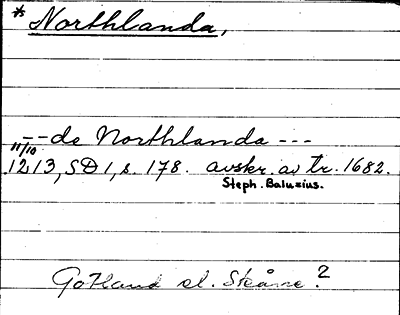 * Northlanda,
-- de Northlanda ---
11/10
1213, SD 1, s. 178. avskr. av tr. 1682.
Steph. Baluzius.
Gotland el. Skåne?